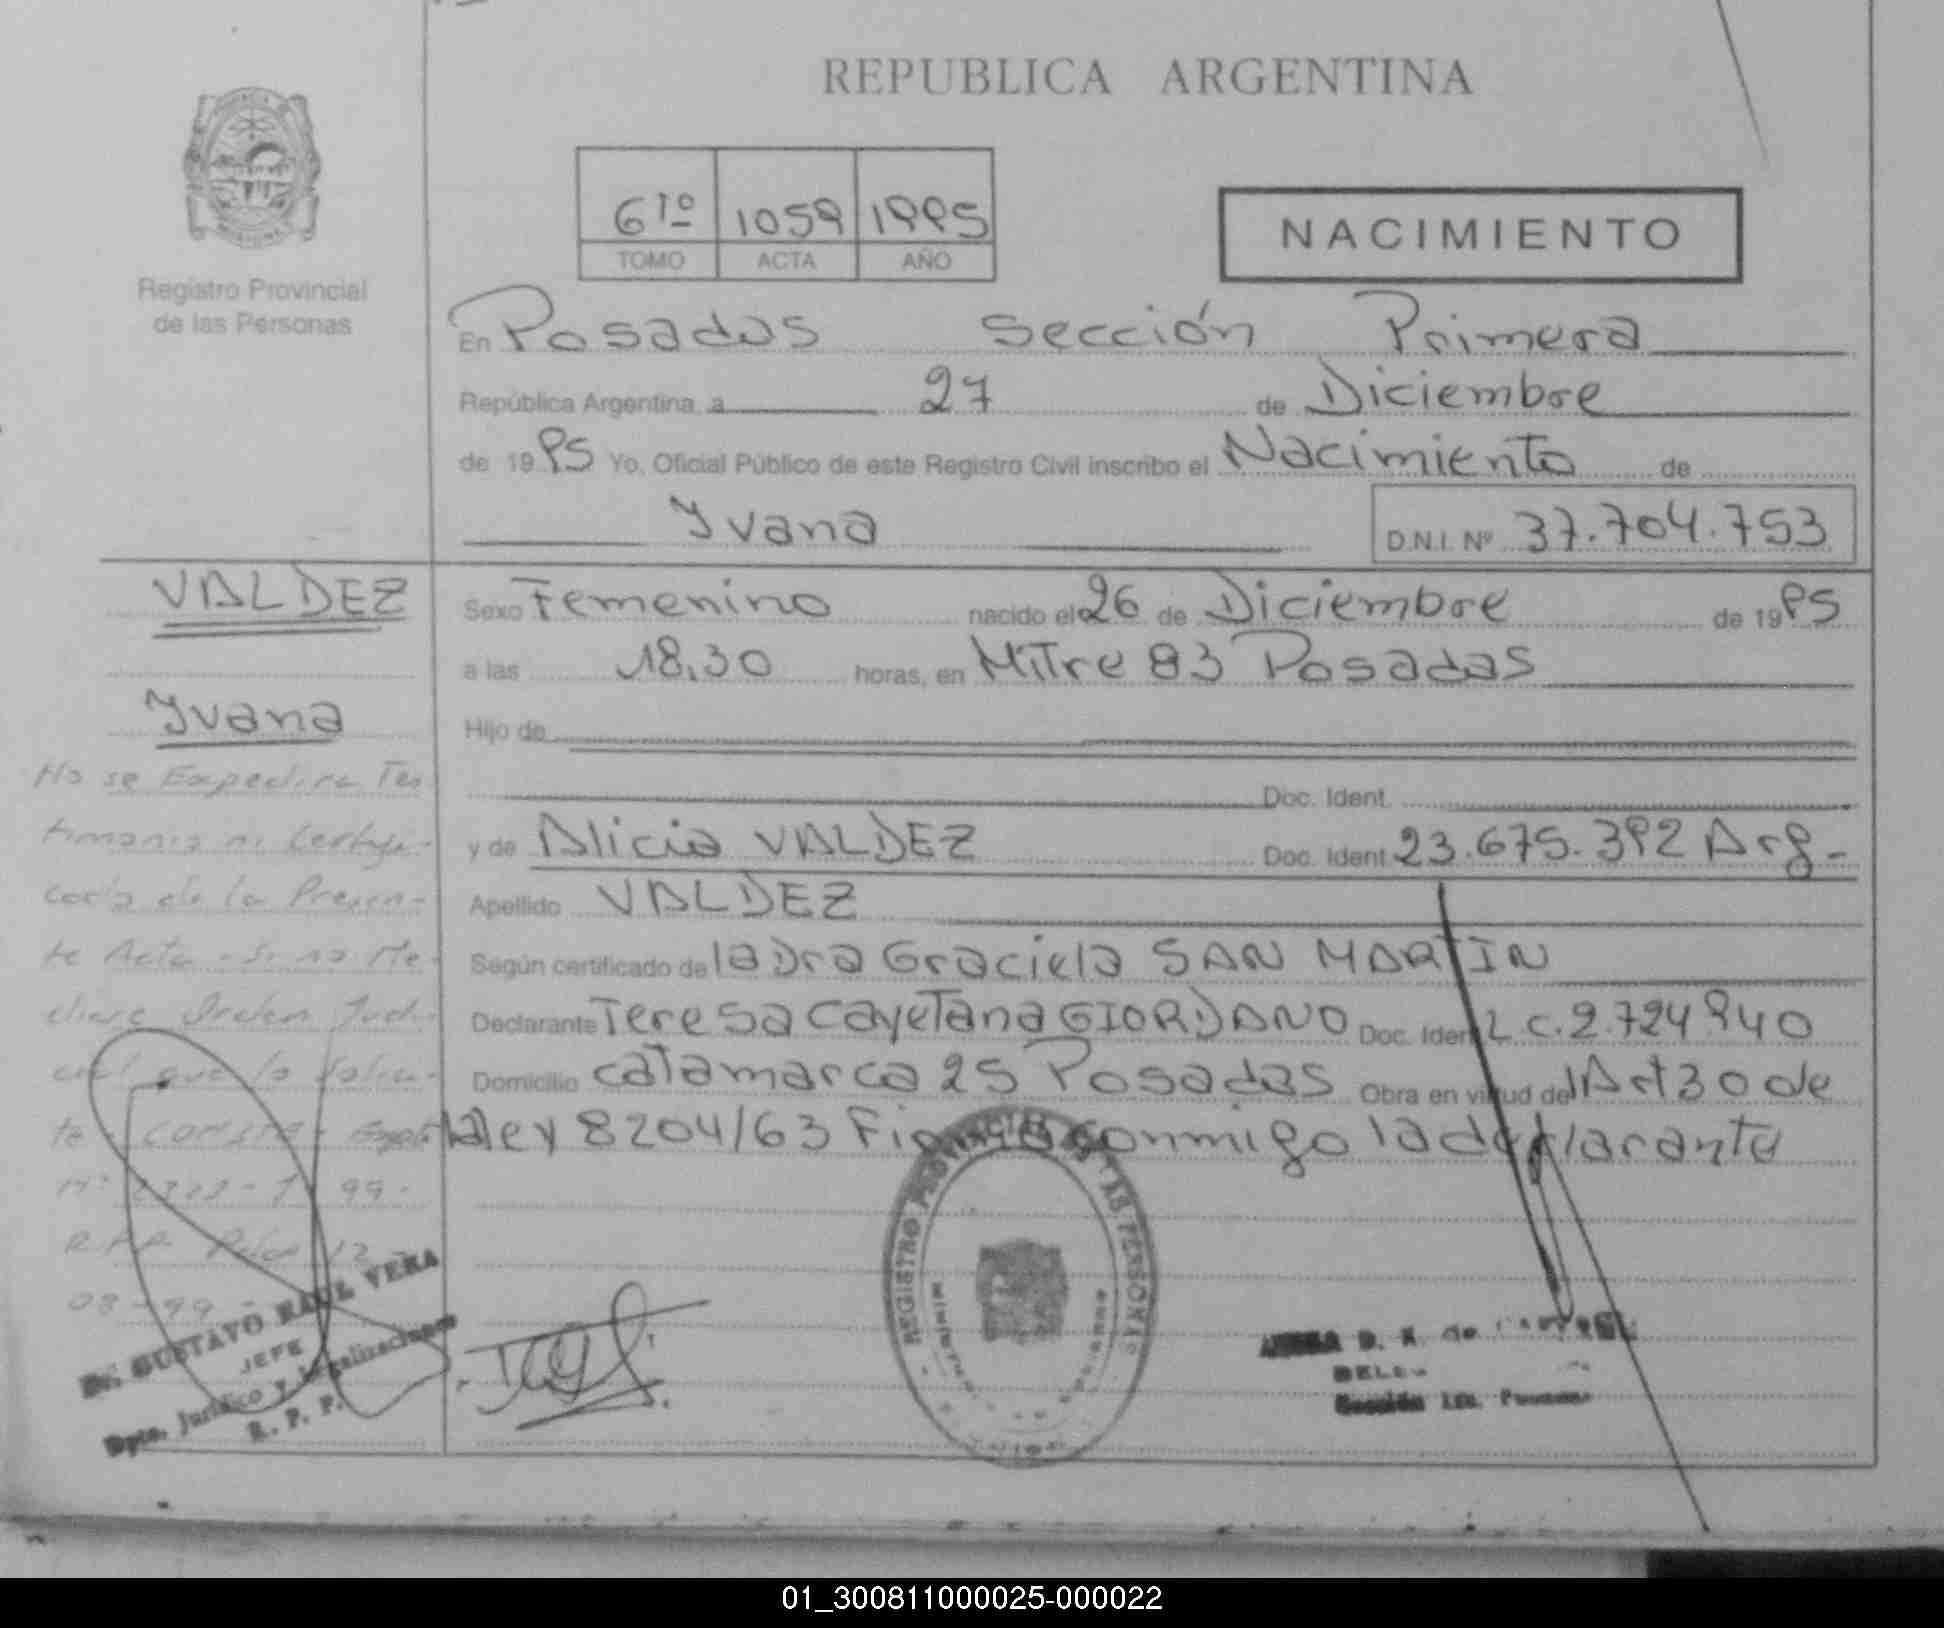 REPUBLICA ARGENTINA
Registro Provincial
de las Personas
6to 1059 1995
TOMO ACTA AÑO
NACIMIENTO
En Posadas Sección Primera
República Argentina, a 27 de Diciembre
de 1995 Yo, Oficial Público de este Registro Civil inscribo el Nacimiento de
Yvana D.N.I. Nº 37.704.753
VALDEZ
Yvana
No se Expedira Tes
timonio ni Certifi-
cado de la Presen-
te Acta - Si no Me-
diare Orden Judi-
cial que lo solici-
te
99.
08-99
Dr. GUSTAVO RAUL VERA
JEFE
Dpto. Jurídico y Legalizaciones
R. P. P.
Sexo Femenino nacido el 26 de Diciembre de 1995
a las 18,30 horas, en Mitre 83 Posadas
Hijo de
Doc. Ident.
y de Alicia VALDEZ Doc. Ident. 23.675.392 Arg-
Apellido VALDEZ
Según certificado de la Dra Graciela SAN MARTIN
Declarante Teresa Cayetana GIORDANO Doc. Ident L.C. 2.724940
Domicilio Catamarca 25 Posadas Obra en virtud del Art 30 de
la ley 8204/63 Firma conmigo la declarante
REGISTRO PROVINCIAL DE LAS PERSONAS
Sección 1ra. Posadas
01_300811000025-000022